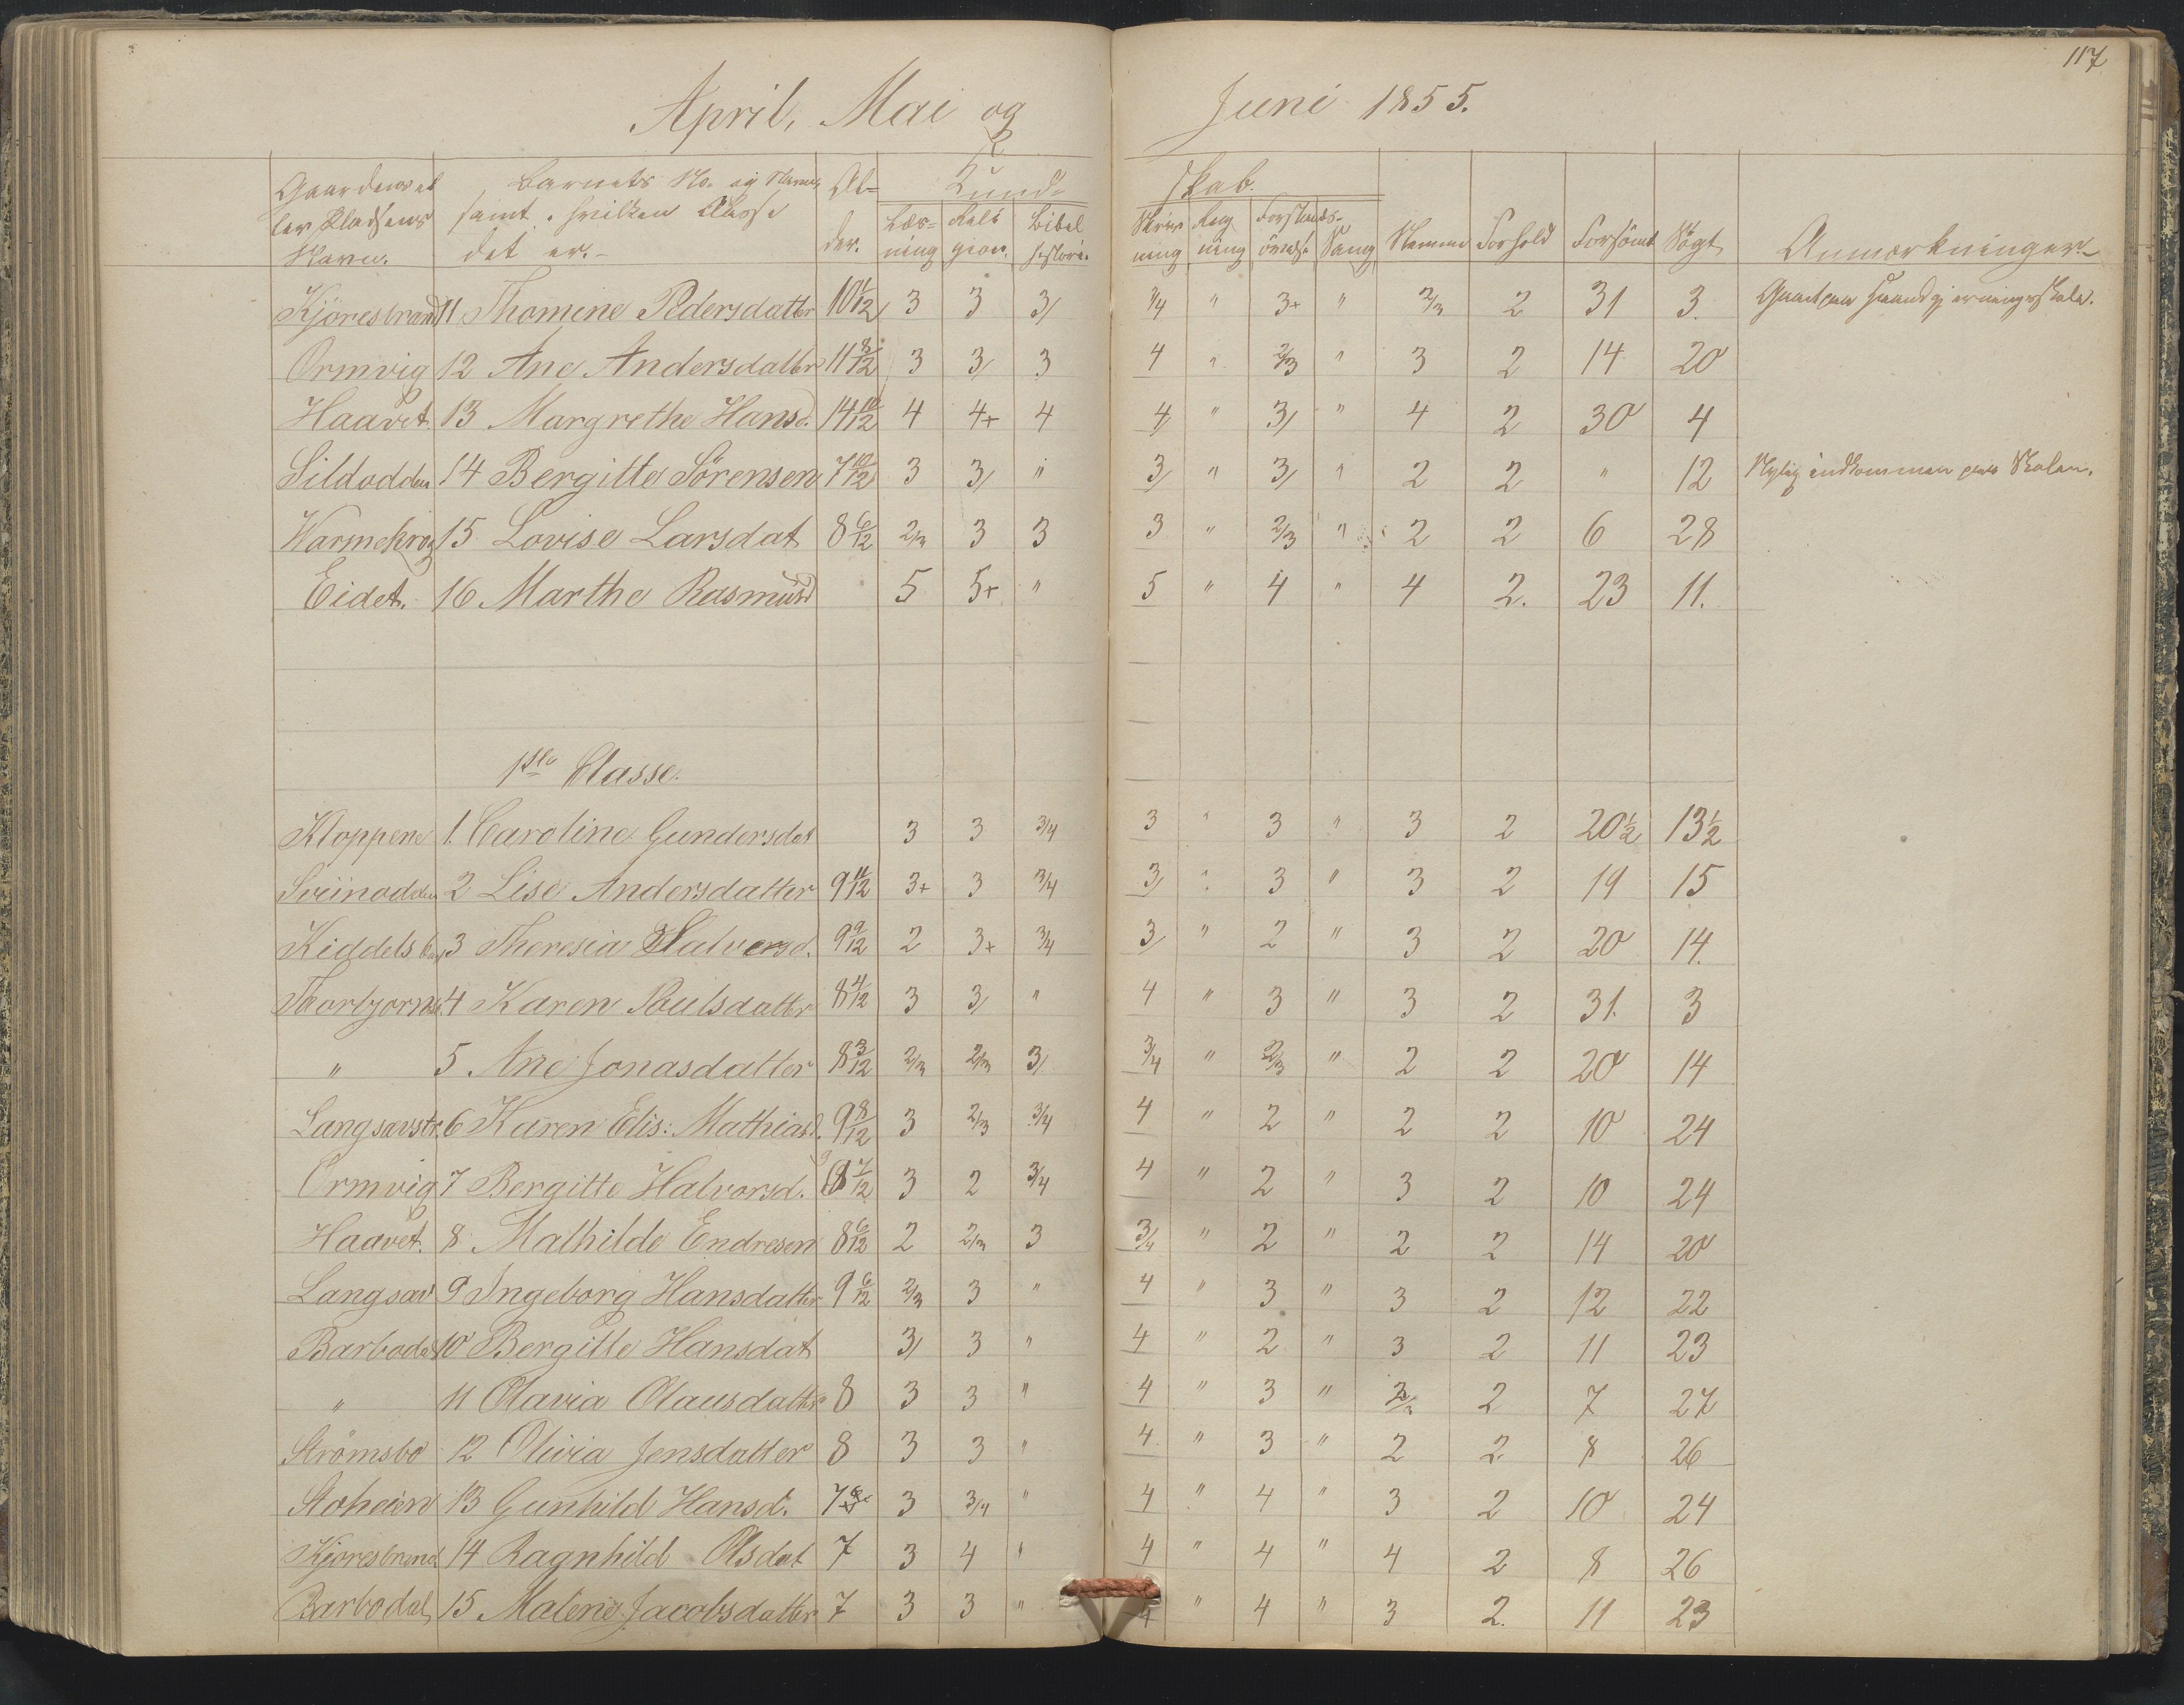 117
April, Mai og Juni 1855.
Gaardens el ler Pladsens Navn. Barnets No. og Navn, samt i hvilken Classe det er. Al= der. Kund= skab.
Læs= ning Reli gion. Bibel historie. Skriv ning Reg ning Forstands= övelse Sang Nemme Forhold Forsömt Sögt Anmærkninger
Kjöresbrand 11 Thomine Pedersdatter 10 1/12 3 3 3/ 3/4 " 3+ " 2/3 2 31 3. Gaaet paa Haandgjerningsskole.
Ormvig 12 Ane Andersdatter 11 8/12 3 3/ 3 4 " 2/3 " 3 2 14 20
Haavet. 13 Margrethe Hansd. 14 10/12 4 4+ 4 4/ " 3/ " 4 2 30 4
Sildodden 14 Bergitte Sörensen 7 10/12 3 3/ " 3/ " 3/ " 2 2 " 12 Nylig indkommen paa Skolen.
Warmekrog 15 Lovise Larsdat 8 6/12 2/3 3 3 3 " 2/3 " 2 2 6 28
Eidet. 16 Marthe Rasmusd 5 5+ " 5 " 4 " 4 2. 23 11.
1ste Classe.
Kloppene 1. Caroline Gundersdat 3 3 3/4 3 " 3 " 3 2 20 1/2 13 1/2
Sviinodden 2 Lise Andersdatter 9 11/12 3+ 3 3/4 3/ " 3 " 3 2 19 15
Kiddelsb 3 Theresia Halversd. 9 9/12 2 3+ 3/4 3/ " 2 " 3 2 20 14.
Thorbjornsd 4 Karen Poulsdatter 8 4/12 3 3/ " 4 " 3 " 3 2 31. 3
" 5 Ane Jonasdatter 8 3/12 2/3 2/3 3/ 3/4 " 2/3 " 2 2 20 14
Langsævstr. 6 Karen Elis: Mathiasd. 9 8/12 3 2/3 3/4 4 " 2 " 2 2 10 24
Ormvig 7 Bergitte Halvorsd. 8 7/12 3 2 3/4 4 " 2 " 3 2 10 24
Haavet. 8 Mathilde Endresen 8 6/12 2 2/3 3 3/4 " 2 " 2 2 14 20
Langsæv 9 Ingeborg Hansdatter 9 6/12 2/3 3 " 4 " 3 " 3 2 12 22
Barbodal 10 Bergitte Hansdat 3/ 3 " 4 " 2 " 3 2 11 23
" 11 Olavia Olausdatter 8 3 3 " 4 " 3 " 2 7 27
Strömsbo 12 Olivia Jensdatter 8 3 3 " 4 " 3 " 2 2 8 26
Stoheien 13 Gunhild Hansd. 7 3 3/4 " 4 " 4 " 3 2 10 24
Kjoresbrand 14 Ragnhild Olsdat 7 3 4 " 4 " 4 " 4 2 8 26
Barbodal 15 Malene Jacobsdatter 7 3 3 " 4 " 4 " 3 2. 11 23